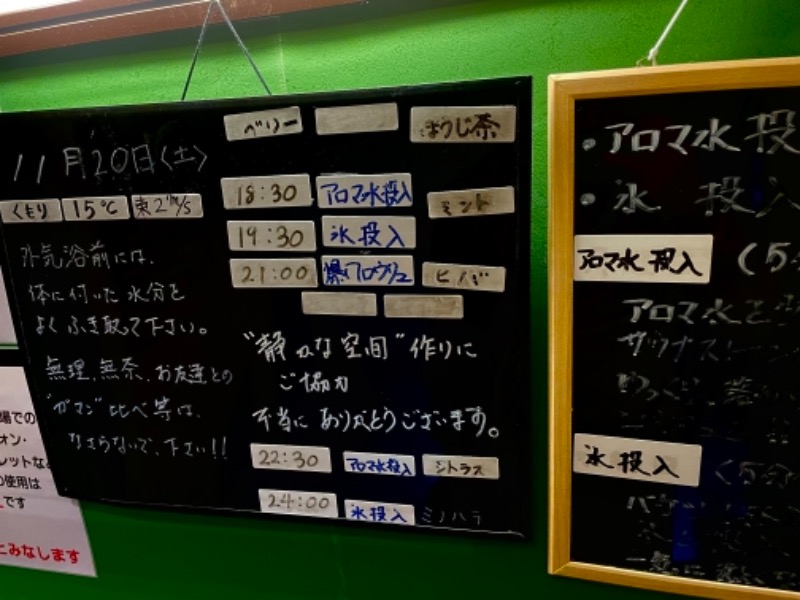 11月20日(土)
くもり 15℃ 東2m/s
外気浴前には、
体に付いた水分を
よくふき取って下さい。
無理、無茶、お友達との
"ガマン"比べ等は、
なさらないで、下さい!!
ベリー ほうじ茶
18:30 アロマ水投入 ミント
19:30 氷投入
21:00 爆アロウリュ ヒノキ
"静かな空間"作りに
ご協力
本当にありがとうございます。
22:30 アロマ水投入 シトラス
24:00 氷投入
・アロマ水投
・氷 投入
アロマ水投入 (5分
アロマ水を
サウナストーン
氷投入 (5分
場での
オン・
レットな
の使用は
です
とみなします